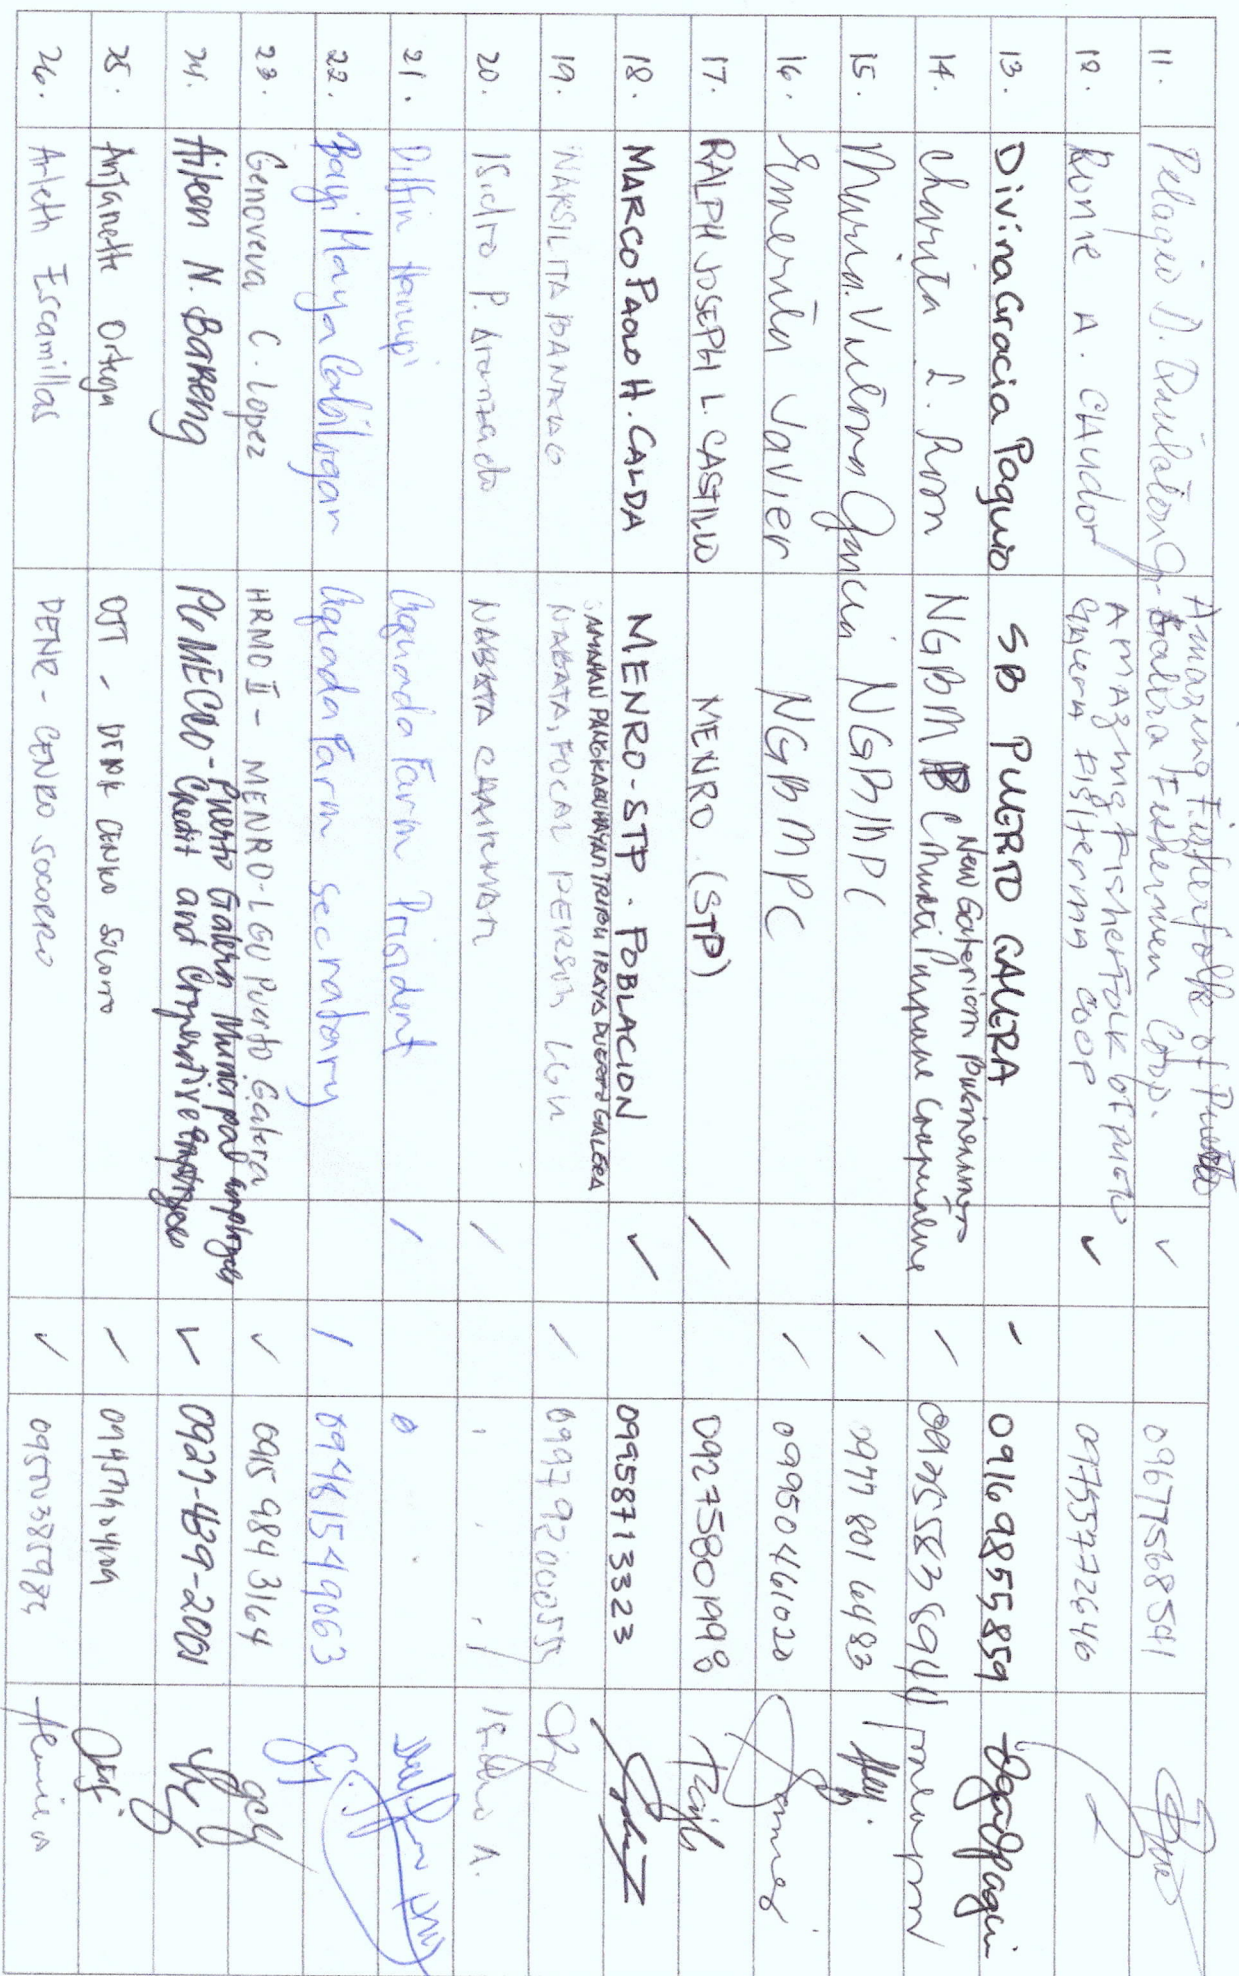 11. Pelagio D. Quilaton Jr. Amazing Fisherfolk of Puerto Galera Fishermen Coop. ✓ 09677568541
12. Ronie A. Claudor AMAZING Fisherfolk of Pueto Galera Fisherman coop ✓ 09755772646
13. Divina Gracia Paguio SB PUERTO GALERA - 0916 9855859
14. Charita L. NGBMPC New Galerian Businessmen's / 
15. Maria Victoria Garcia NGBMPC / 0977 801 6483
16. Emerita Javier NGBMPC / 09950461020
17. RALPH JOSEPH L. CASTILLO MENRO (STP) / 09275801998
18. MARCO PAOLO H. CALDA MENRO-STP. POBLACION ✓ 09958713323
19. NARSILITA SAMAHAN PANGKABUHAYAN TRIBU IRAYA PUERTO GALERA
NABATA, FOCAL PERSON LGU / 
20. Isidro P. Aranzado NABATA CHAIRMAN /
21. Dilfin Aquada Farm Prisident /
22. Bayi Maya Cabiligan Aquada Farm Secradary / 09481549063
23. Genoveva C. Lopez HRMO II - MENRO-LGU Puerto Galera ✓ 0915 984 3164
24. Aileen N. Bareng PGMECCO - Puerto Galera Municipal employees
Credit and Cooperative ✓ 0927-489-2001
25. Anjanette Ortega OJT - DENR CENRO Socorro /
26. Arleth Escamillas DENR - CENRO SOCORRO ✓